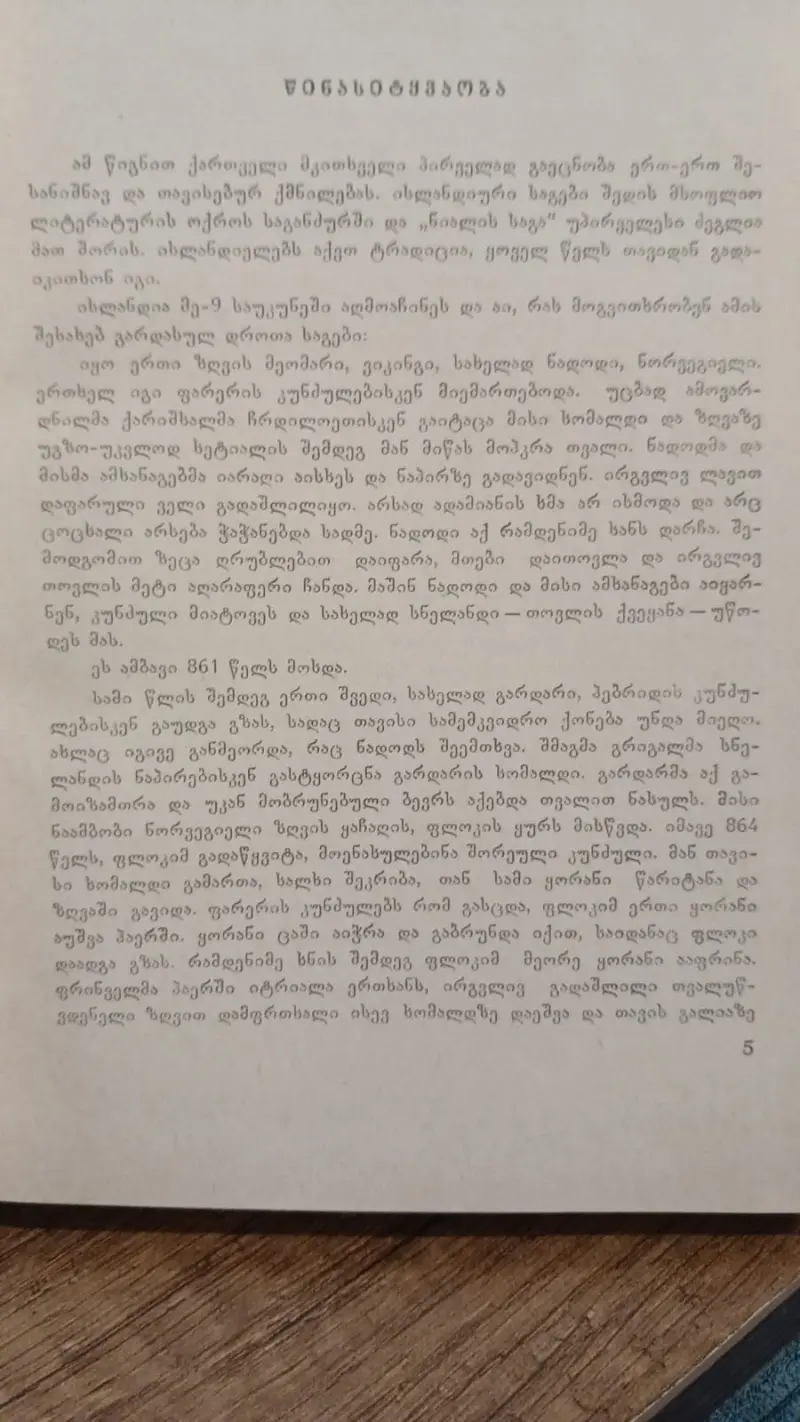 წინასიტყვაობა
ამ წიგნით ქართველი მკითხველი პირველად გაეცნობა ერთ-ერთ შე-
სანიშნავ და თავისებურ ქმნილებას. ისლანდიური საგები შედის მსოფლიო
ლიტერატურის ოქროს საგანძურში და „ნიალის საგა“ უპირველესი ძეგლია
მათ შორის. ისლანდიელებს აქვთ ტრადიცია, ყოველ წელს თავიდან გადა-
იკითხონ იგი.
ისლანდია მე-9 საუკუნეში აღმოაჩინეს და აი, რას მოგვითხრობენ ამის
შესახებ გარდასულ დროთა საგები:
იყო ერთი ზღვის მეომარი, ვიკინგი, სახელად ნადოდი, ნორვეგიელი.
ერთხელ იგი ფარერის კუნძულებისკენ მიემართებოდა. უცბად ამოვარ-
დნილმა ქარიშხალმა ჩრდილოეთისკენ გაიტაცა მისი ხომალდი და ზღვაზე
უგზო-უკვლოდ ხეტიალის შემდეგ მან მიწას მოჰკრა თვალი. ნადოდმა და
მისმა ამხანაგებმა იარაღი აისხეს და ნაპირზე გადავიდნენ. ირგვლივ ლავით
დაფარული ველი გადაშლილიყო. არსად ადამიანის ხმა არ ისმოდა და არც
ცოცხალი არსება ჭაჭანებდა სადმე. ნადოდი აქ რამდენიმე ხანს დარჩა. შე-
მოდგომით ზეცა ღრუბლებით დაიფარა, მთები დაითოვლა და ირგვლივ
თოვლის მეტი აღარაფერი ჩანდა. მაშინ ნადოდი და მისი ამხანაგები აიყარ-
ნენ, კუნძული მიატოვეს და სახელად სნელანდი — თოვლის ქვეყანა — უწო-
დეს მას.
ეს ამბავი 861 წელს მოხდა.
სამი წლის შემდეგ ერთი შვედი, სახელად გარდარი, ჰებრიდის კუნძუ-
ლებისკენ გაუდგა გზას, სადაც თავისი სამემკვიდრო ქონება უნდა მიეღო.
ახლაც იგივე განმეორდა, რაც ნადოდს შეემთხვა. შმაგმა გრიგალმა სნე-
ლანდის ნაპირებისკენ გასტყორცნა გარდარის ხომალდი. გარდარმა აქ გა-
მოიზამთრა და უკან მობრუნებული ბევრს აქებდა თვალით ნახულს. მისი
ნაამბობი ნორვეგიელი ზღვის ყაჩაღის, ფლოკის ყურს მისწვდა. იმავე 864
წელს, ფლოკიმ გადაწყვიტა, მოენახულებინა შორეული კუნძული. მან თავი-
სი ხომალდი გამართა, ხალხი შეკრიბა, თან სამი ყორანი წარიტანა და
ზღვაში გავიდა. ფარერის კუნძულებს რომ გასცდა, ფლოკიმ ერთი ყორანი
აუშვა ჰაერში. ყორანი ცაში აიჭრა და გაბრუნდა იქით, საიდანაც ფლოკი
დაადგა გზას. რამდენიმე ხნის შემდეგ ფლოკიმ მეორე ყორანი ააფრინა.
ფრინველმა ჰაერში იტრიალა ერთხანს, ირგვლივ გადაშლილი თვალუწ-
ვდენელი ზღვით დამფრთხალი ისევ ხომალდზე დაეშვა და თავის გალიაზე
5